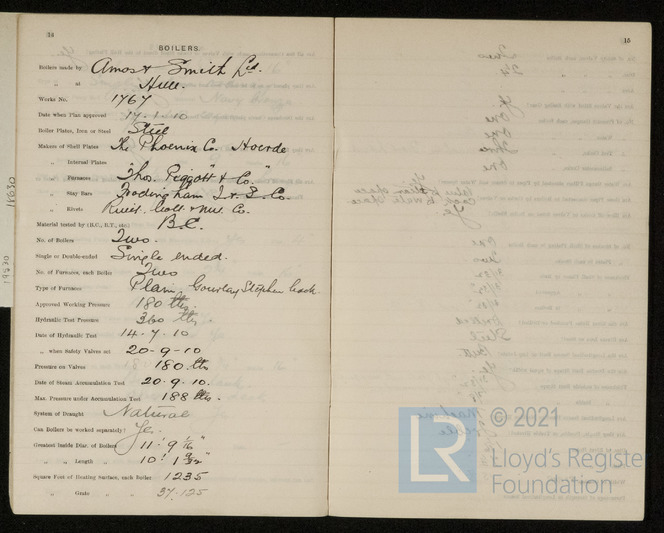 14
BOILERS.
Boilers made by Amos & Smith Ld.
" at Hull.
Works No. 1767
Date when Plan approved 17-1-10
Boiler Plates, Iron or Steel Steel
Makers of Shell Plates The Phoenix Co. Hoerde
" Internal Plates " "
" Furnaces Thos. Piggott & Co.
" Stay Bars Frodingham I. & S. Co.
" Rivets Rivet Bolt & Nut Co.
Material tested by (B.C., B.T., etc.) B.C.
No. of Boilers Two.
Single or Double-ended Single ended.
No. of Furnaces, each Boiler Two
Type of Furnaces Plain, Gourlay Stephen back
Approved Working Pressure 180 lbs.
Hydraulic Test Pressure 360 lbs.
Date of Hydraulic Test 14-7-10
" when Safety Valves set 20-9-10
Pressure on Valves 180 lbs
Date of Steam Accumulation Test 20-9-10.
Max. Pressure under Accumulation Test 188 lbs.
System of Draught Natural
Can Boilers be worked separately? Yes.
Greatest Inside Diar. of Boilers 11' 9 1/16"
" " Length " 10' 1 9/32"
Square Feet of Heating Surface, each Boiler 1235
" " Grate " " 37.125
15
© 2021
LR
Lloyd's Register
Foundation